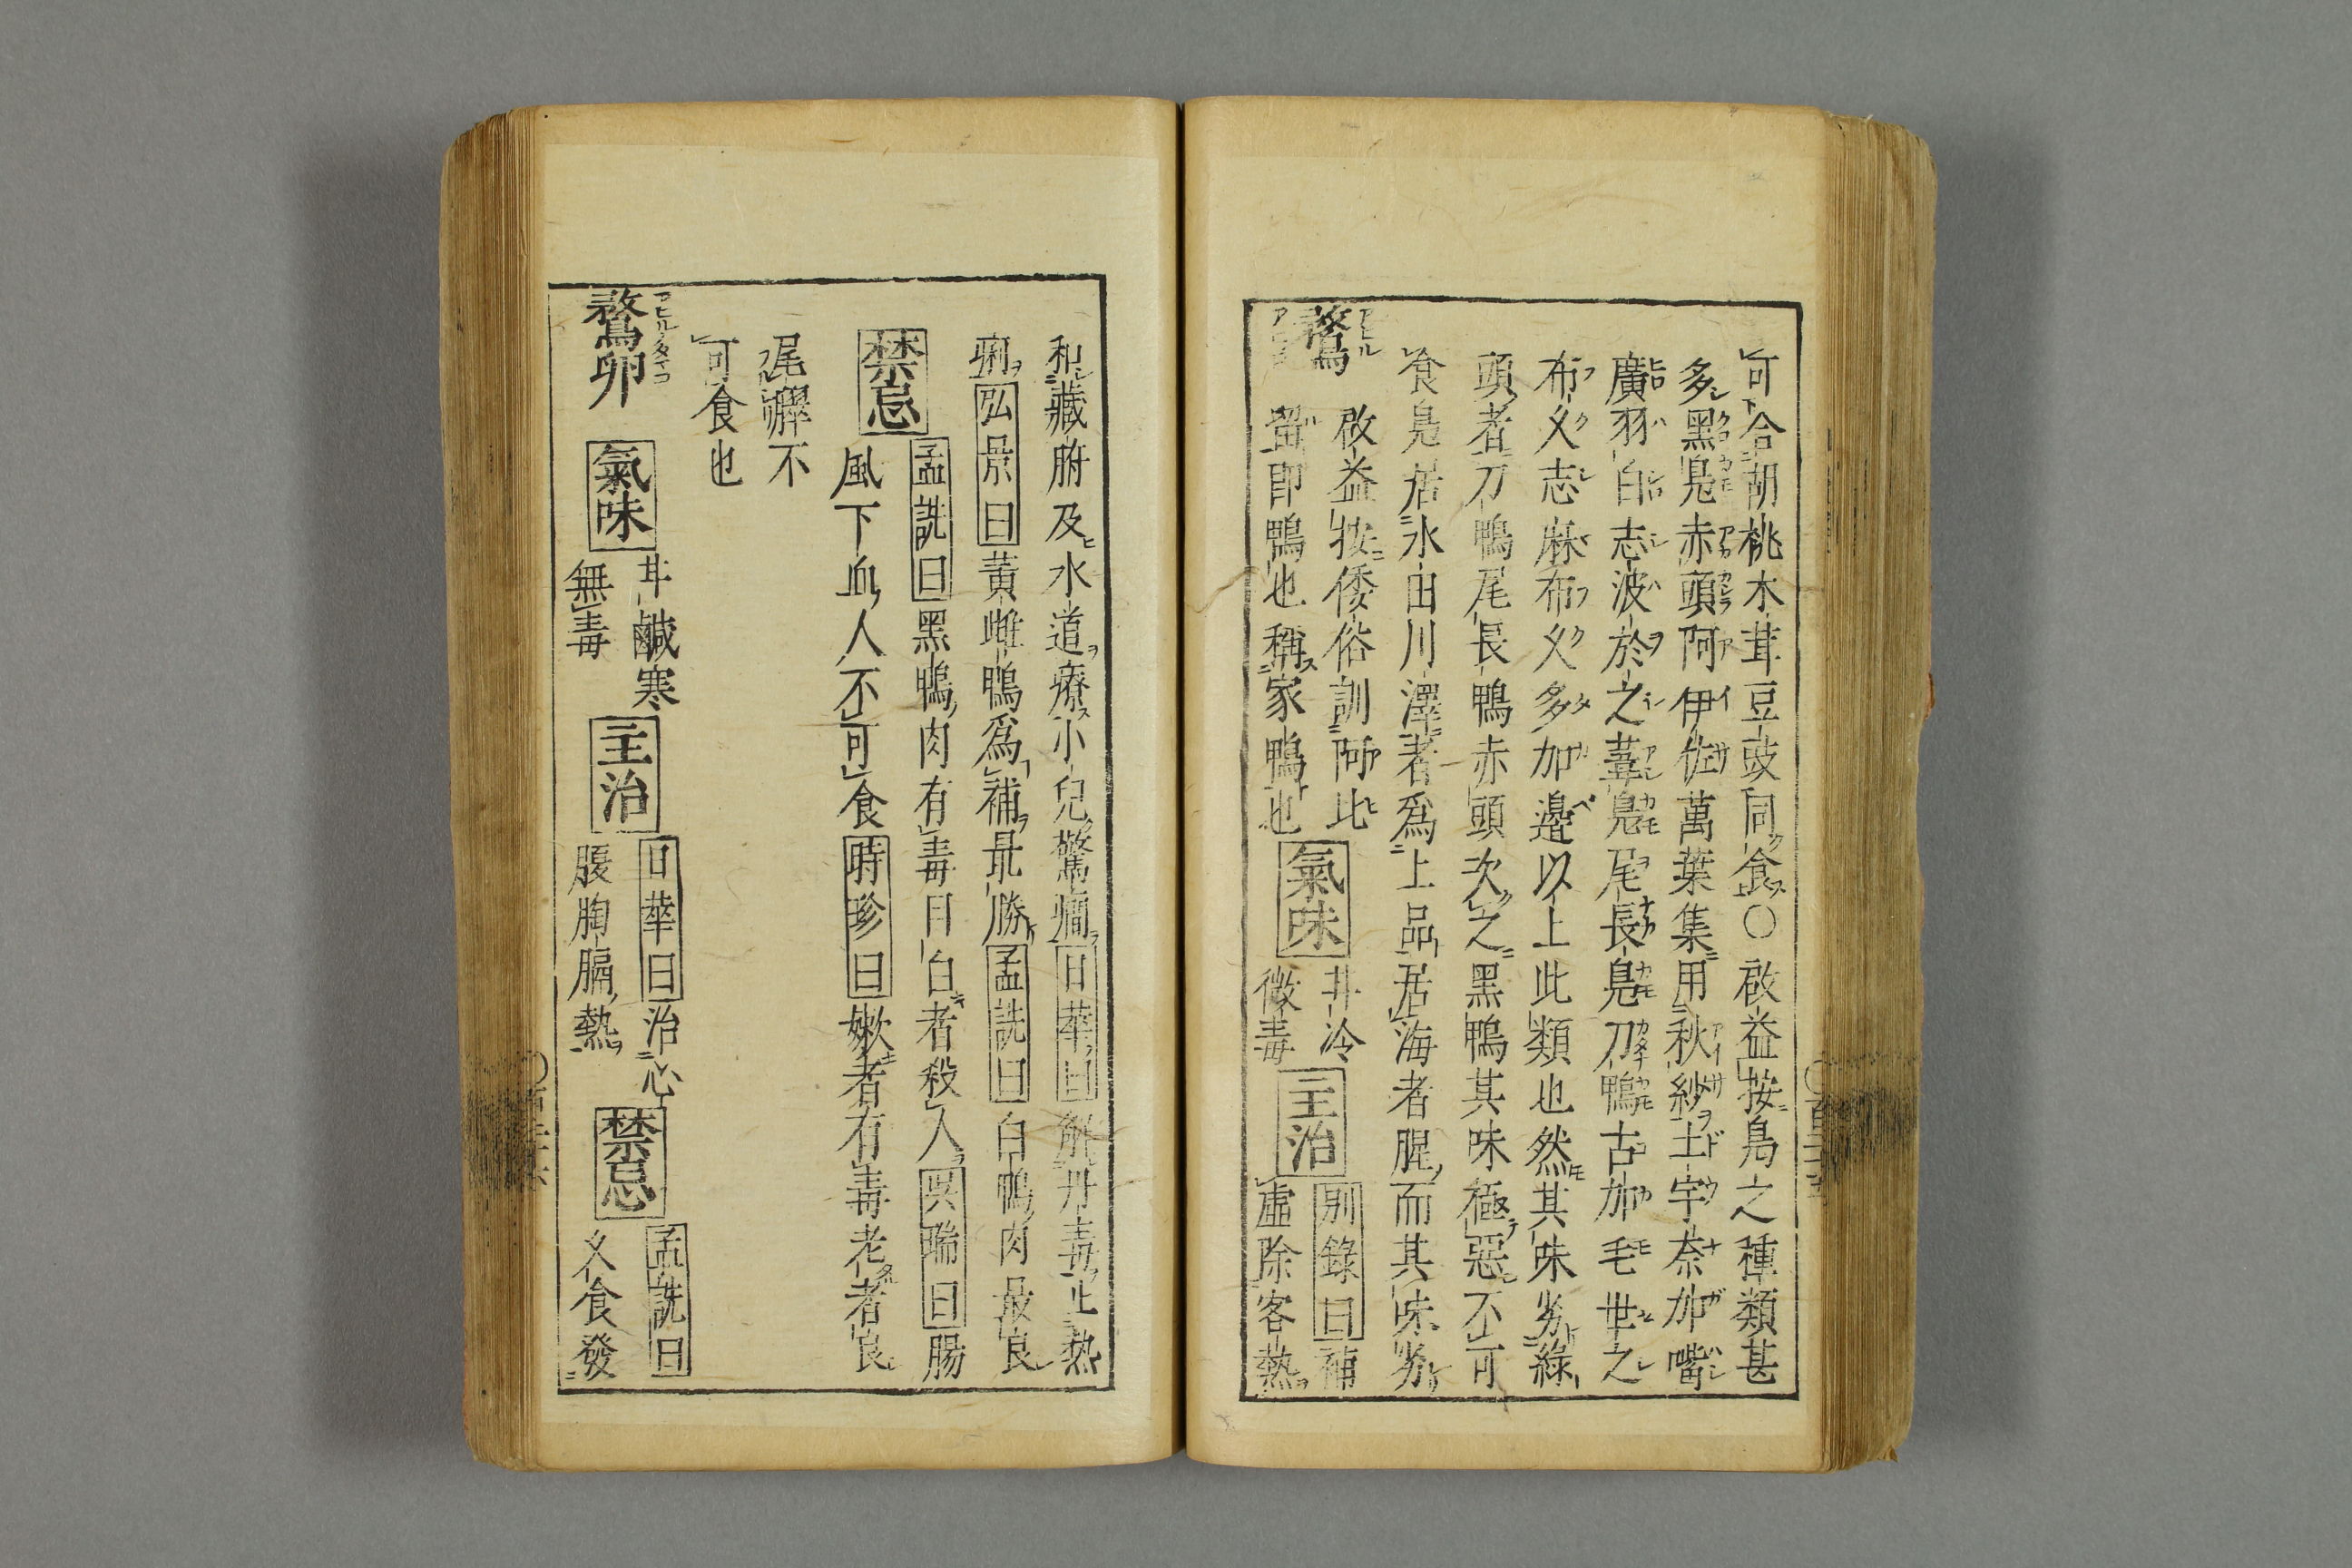 可合胡桃木茸豆豉同食〇啟益按鳧之種類甚
多黑鳧赤頭阿伊佐萬葉集用秋紗土宇奈加嘴
廣羽白志波於之葦鳧尾長鳧刀鴨古加毛世之
布久志麻布久多加邉以上此類也然其味劣綠
頭者刀鴨尾長鴨赤頭次之黑鴨其味極惡不可
食鳧居水田川澤者爲上品居海者腥而其味劣
鶩
啟益按倭俗訓阿比
留即鴨也稱家鴨也
氣味
甘冷
微毒
主治
別錄曰補
虛除客熱
和藏腑及水道療小兒驚癇日華曰解丹毒止熱
痢弘景曰黃雌鴨爲補最勝孟詵曰白鴨肉最良
禁忌
孟詵曰黑鴨肉有毒日白者殺人吳瑞曰腸
風下血人不可食時珍曰嫩者有毒老者良
尾臎不
可食也
鶩卵
アヒルノタマコ
氣味
甘鹹寒
無毒
主治
日華曰治心
腹胸膈熱
禁忌
孟詵曰
久食發